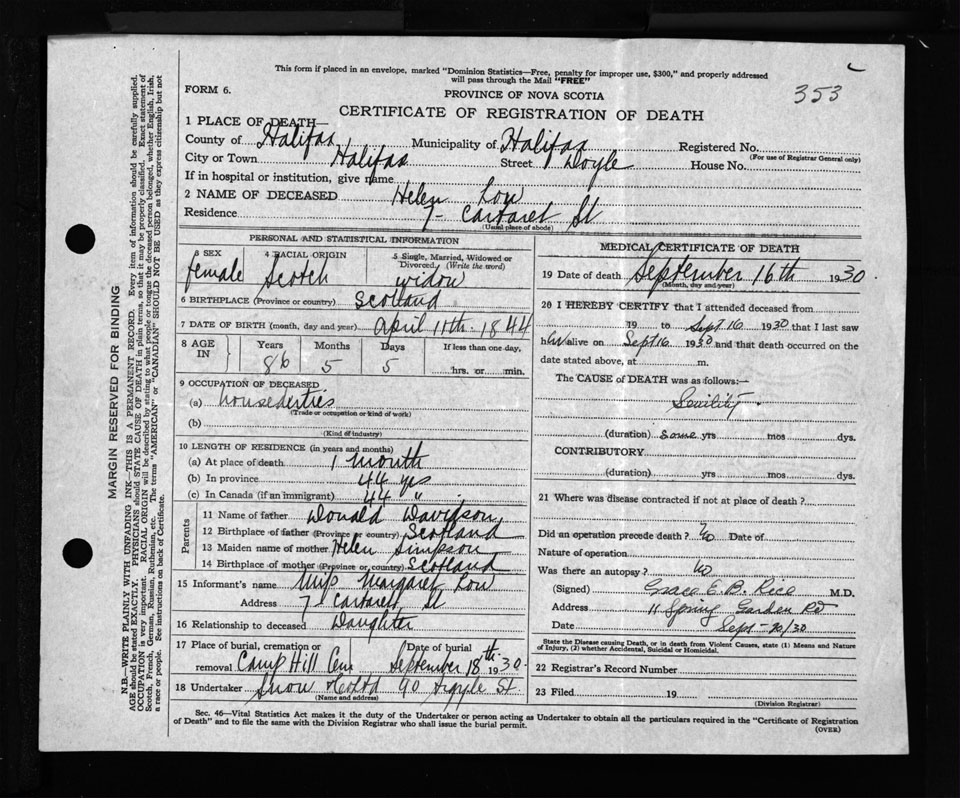 This form if placed in an envelope, marked "Dominion Statistics—Free, penalty for improper use, $300," and properly addressed
will pass through the Mail "FREE"
FORM 6.
PROVINCE OF NOVA SCOTIA
353
CERTIFICATE OF REGISTRATION OF DEATH
1 PLACE OF DEATH—
County of Halifax Municipality of Halifax Registered No.
(For use of Registrar General only)
City or Town Halifax Street Doyle House No.
If in hospital or institution, give name
2 NAME OF DECEASED Helen Low
Residence 7- Cartaret St
(Usual place of abode)
PERSONAL AND STATISTICAL INFORMATION
3 SEX 4 RACIAL ORIGIN 5 Single, Married, Widowed or
Divorced. (Write the word)
female Scotch widow
6 BIRTHPLACE (Province or country) Scotland
7 DATE OF BIRTH (month, day and year) April 11th. 1844
8 AGE IN Years Months Days If less than one day,
86 5 5 hrs. or min.
9 OCCUPATION OF DECEASED
(a) houseduties
(Trade or occupation or kind of work)
(b)
(Kind of industry)
10 LENGTH OF RESIDENCE (in years and months)
(a) At place of death 1 month
(b) In province 44 yrs
(c) In Canada (if an immigrant) 44 "
Parents
11 Name of father Donald Davidson
12 Birthplace of father (Province or country) Scotland
13 Maiden name of mother Helen Simpson
14 Birthplace of mother (Province or country) Scotland
15 Informant's name Miss Margaret Low
Address 7- Cartaret St
16 Relationship to deceased Daughter
17 Place of burial, cremation or Date of burial
removal Camp Hill Cem September 18th 1930
18 Undertaker Snow & Co Ltd 90 Argyle St.
(Name and address)
MEDICAL CERTIFICATE OF DEATH
19 Date of death September 16th 1930
(Month, day and year)
20 I HEREBY CERTIFY that I attended deceased from
19 to Sept 16 1930 that I last saw
her alive on Sept 16 1930 and that death occurred on the
date stated above, at m.
The CAUSE of DEATH was as follows:—
Senility.
(duration) some yrs mos dys.
CONTRIBUTORY
(duration) yrs mos dys.
21 Where was disease contracted if not at place of death?
Did an operation precede death? no Date of
Nature of operation
Was there an autopsy? no
(Signed) Grace E. B. Rice M.D.
Address 11 Spring Garden Rd
Date Sept-20/30
State the Disease causing Death, or in death from Violent Causes, state (1) Means and Nature
of Injury, (2) whether Accidental, Suicidal or Homicidal.
22 Registrar's Record Number
23 Filed 19
(Division Registrar)
Sec. 46—Vital Statistics Act makes it the duty of the Undertaker or person acting as Undertaker to obtain all the particulars required in the "Certificate of Registration
of Death" and to file the same with the Division Registrar who shall issue the burial permit.
(OVER)
MARGIN RESERVED FOR BINDING
N.B.—WRITE PLAINLY WITH UNFADING INK—THIS IS A PERMANENT RECORD. Every item of information should be carefully supplied.
AGE should be stated EXACTLY. PHYSICIANS should STATE CAUSE OF DEATH in plain terms, so that it may be properly classified. Exact statement of
OCCUPATION is very important. RACIAL ORIGIN will be described by stating to what people or tongue the deceased person belonged, whether English, Irish,
Scotch, French, German, Russian, Ruthenian, etc. The terms "AMERICAN" or "CANADIAN" SHOULD NOT BE USED as they express citizenship but not
a race or people. See instructions on back of Certificate.